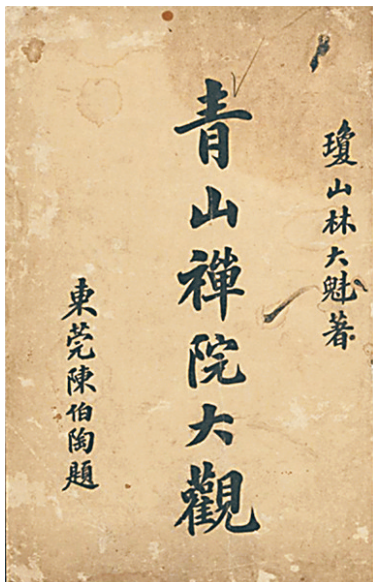 瓊山林大魁著
青山禪院大觀
東莞陳伯陶題